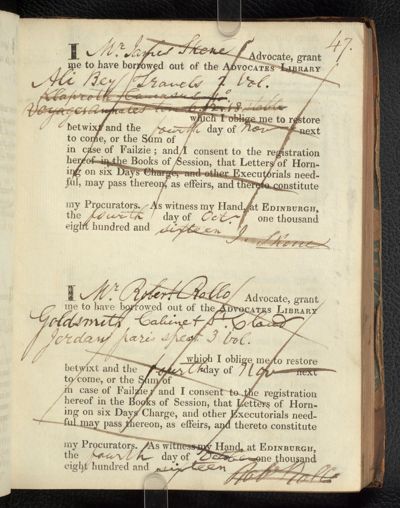 47.
I Mr. James Skene Advocate, grant
me to have borrowed out of the ADVOCATES LIBRARY
Ali Bey Travels 2 Vol.
Klaproth Caucasus 4o
Voyage
which I oblige me to restore
betwixt and the fourth day of Nov next
to come, or the Sum of
in case of Failzie; and I consent to the registration
hereof in the Books of Session, that Letters of Horn-
ing on six Days Charge, and other Executorials need-
ful, may pass thereon, as effeirs, and thereto constitute
my Procurators. As witness my Hand, at EDINBURGH,
the fourth day of Oct. one thousand
eight hundred and sixteen J. Skene
I Mr. Robert Rollo Advocate, grant
me to have borrowed out of the ADVOCATES LIBRARY
Goldsmith Cabinet St. Cloud
3 Vol.
which I oblige me to restore
betwixt and the fourth day of Nov next
to come, or the Sum of
in case of Failzie; and I consent to the registration
hereof in the Books of Session, that Letters of Horn-
ing on six Days Charge, and other Executorials need-
ful may pass thereon, as effeirs, and thereto constitute
my Procurators. As witness my Hand, at EDINBURGH,
the fourth day of one thousand
eight hundred and sixteen Robt Rollo